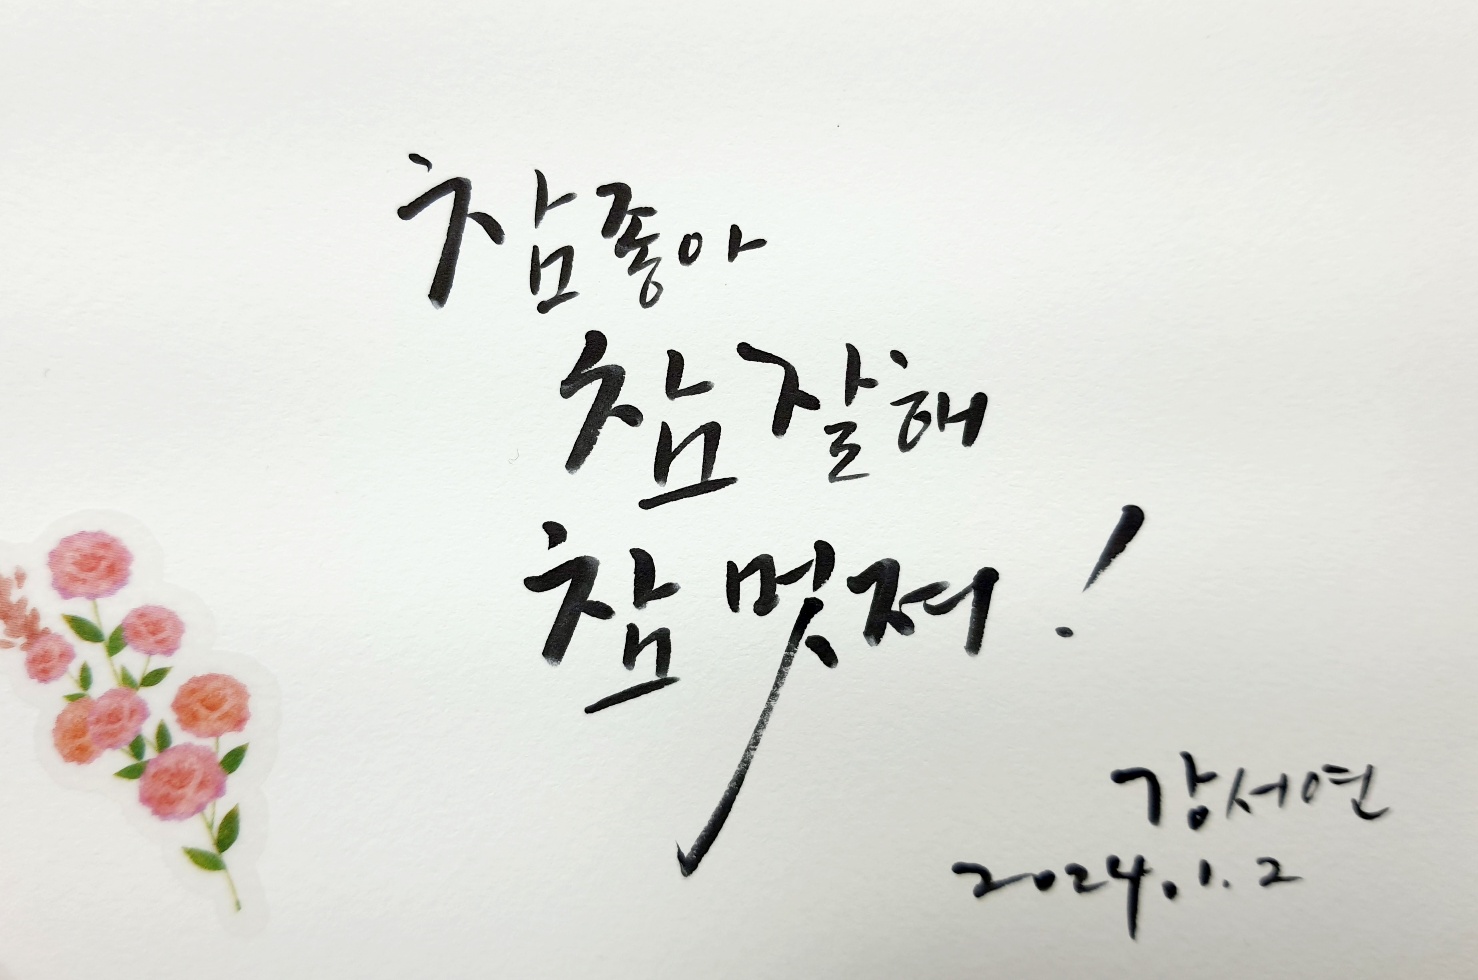 참 좋아
참 잘해
참 멋져!
강서연
2024.1.2